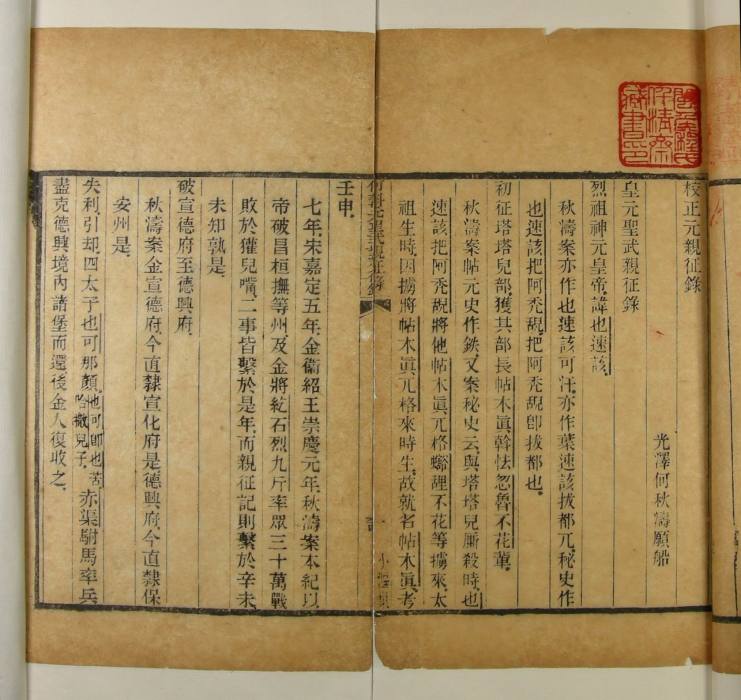 校正元親征錄
光澤何秋濤願船
皇元聖武親征錄
烈祖神元皇帝諱也速該
秋濤案亦作也速該可汗亦作葉速該拔都兀秘史作
也速該把阿禿䚟把阿禿䚟卽拔都也
初征塔塔兒部獲其部長帖木眞斡怯忽魯不花輩
秋濤案帖元史作鉄又案秘史云與塔塔兒厮殺時也
速該把阿禿䚟將他帖木眞兀格豁里不花等擄來太
祖生時因擄將帖木眞兀格來時生故就名帖木眞考
壬申
七年宋嘉定五年金衞紹王崇慶元年秋濤案本紀以
帝破昌桓撫等州及金將紇石烈九斤率眾三十萬戰
敗於獾兒嘴二事皆繫於是年而親征記則繫於辛未
未知孰是
破宣德府至德興府
秋濤案金宣德府今直隸宣化府是德興府今直隸保
安州是
失利引却四太子也可那顏也可卽也苦哈撒兒子赤渠駙馬率兵
盡克德興境內諸堡而還後金人復收之